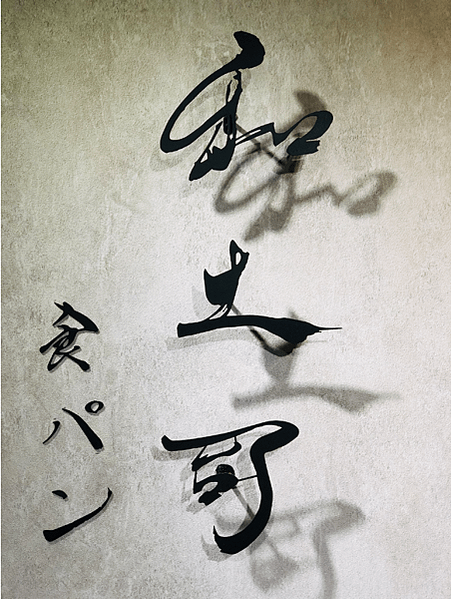 和土司
食パン